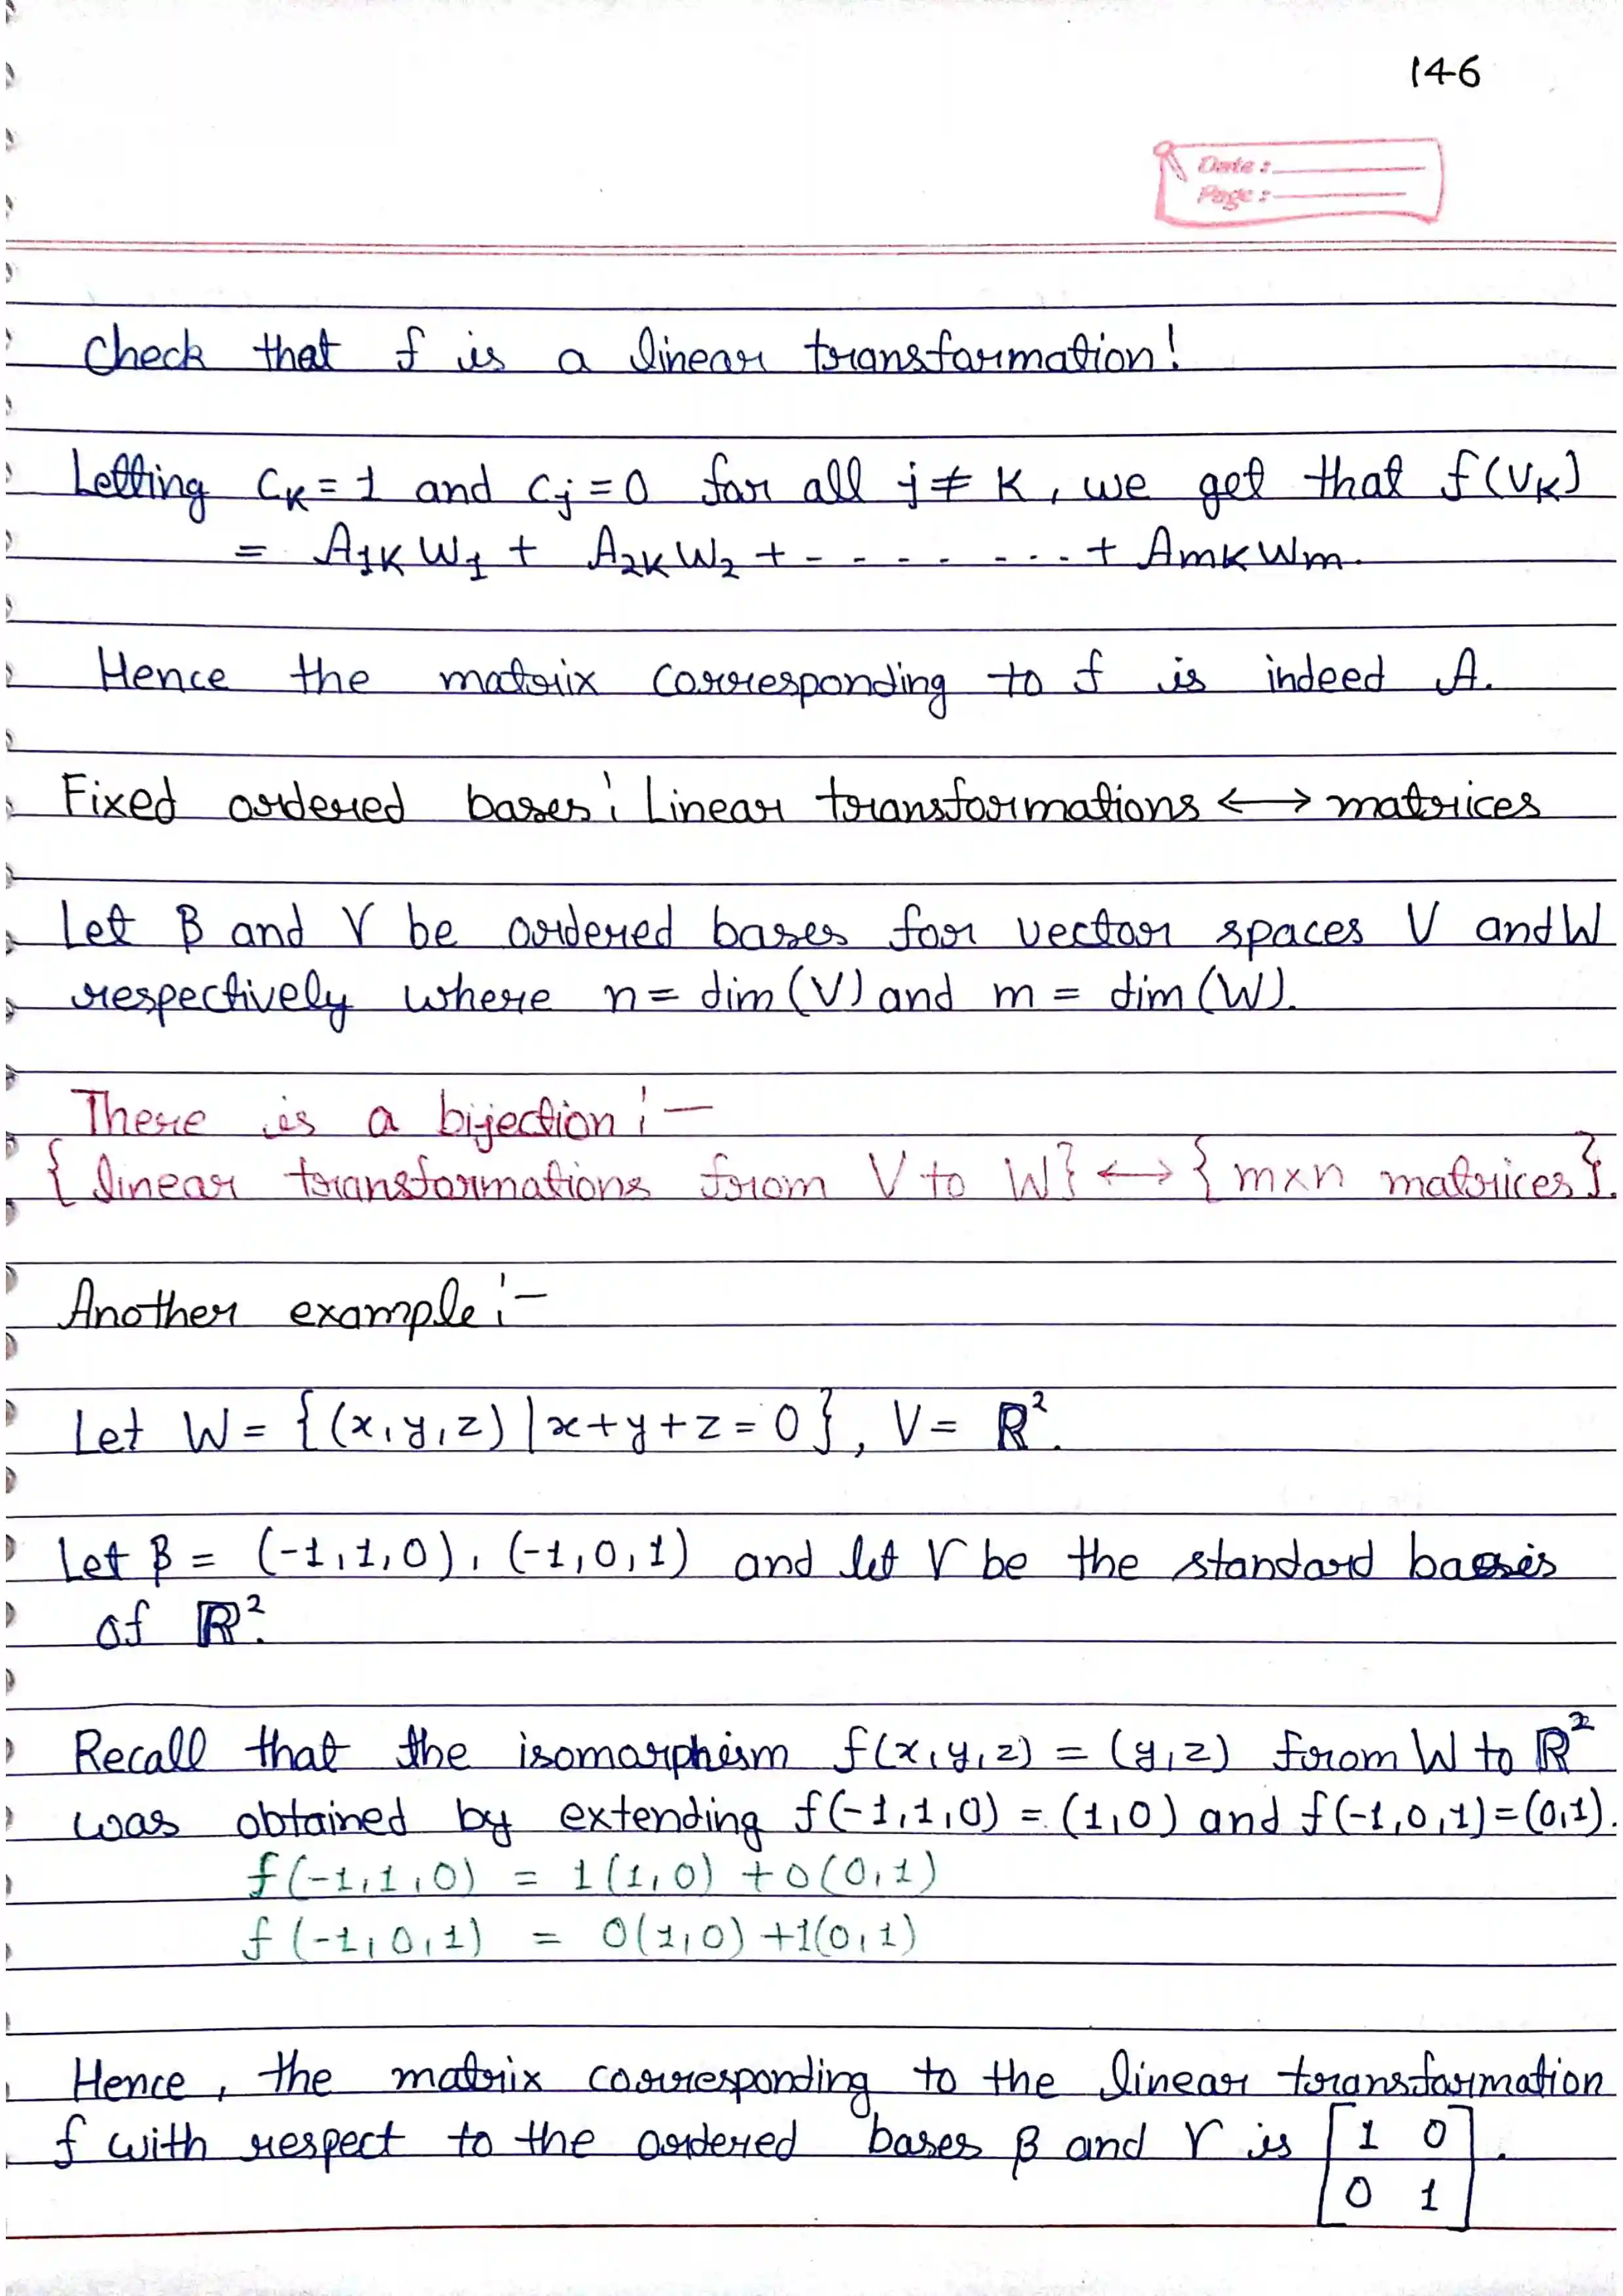 146
Date :
Page :
Check that f is a linear transformation!
Letting Cₖ = 1 and Cⱼ = 0 for all j ≠ K, we get that f(Vₖ)
= A₁ₖ W₁ + A₂ₖ W₂ + - - - - - - - - + Aₘₖ Wₘ.
Hence the matrix corresponding to f is indeed A.
Fixed ordered bases : Linear transformations ↔ matrices
Let β and γ be ordered bases for vector spaces V and W
respectively where n = dim (V) and m = dim (W).
There is a bijection :-
{ linear transformations from V to W} ↔ { m×n matrices}.
Another example :-
Let W = {(x,y,z) | x+y+z = 0}, V = ℝ².
Let β = (-1,1,0), (-1,0,1) and let γ be the standard basis
of ℝ².
Recall that the isomorphism f(x,y,z) = (y,z) from W to ℝ²
was obtained by extending f(-1,1,0) = (1,0) and f(-1,0,1) = (0,1).
f(-1,1,0) = 1(1,0) + 0(0,1)
f(-1,0,1) = 0(1,0) + 1(0,1)
Hence, the matrix corresponding to the linear transformation
f with respect to the ordered bases β and γ is [1 0].
[0 1]